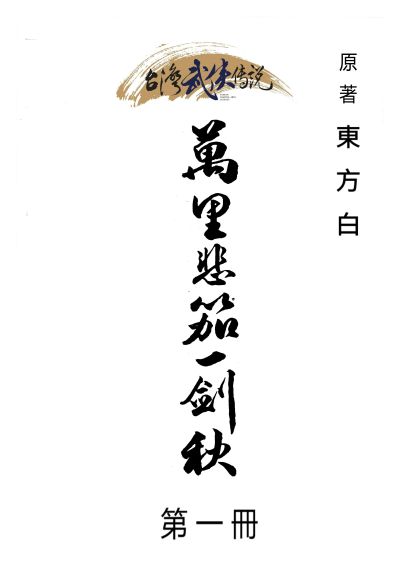 台灣武俠傳說
原著 東方白
萬里悲笳一劍秋
第一冊